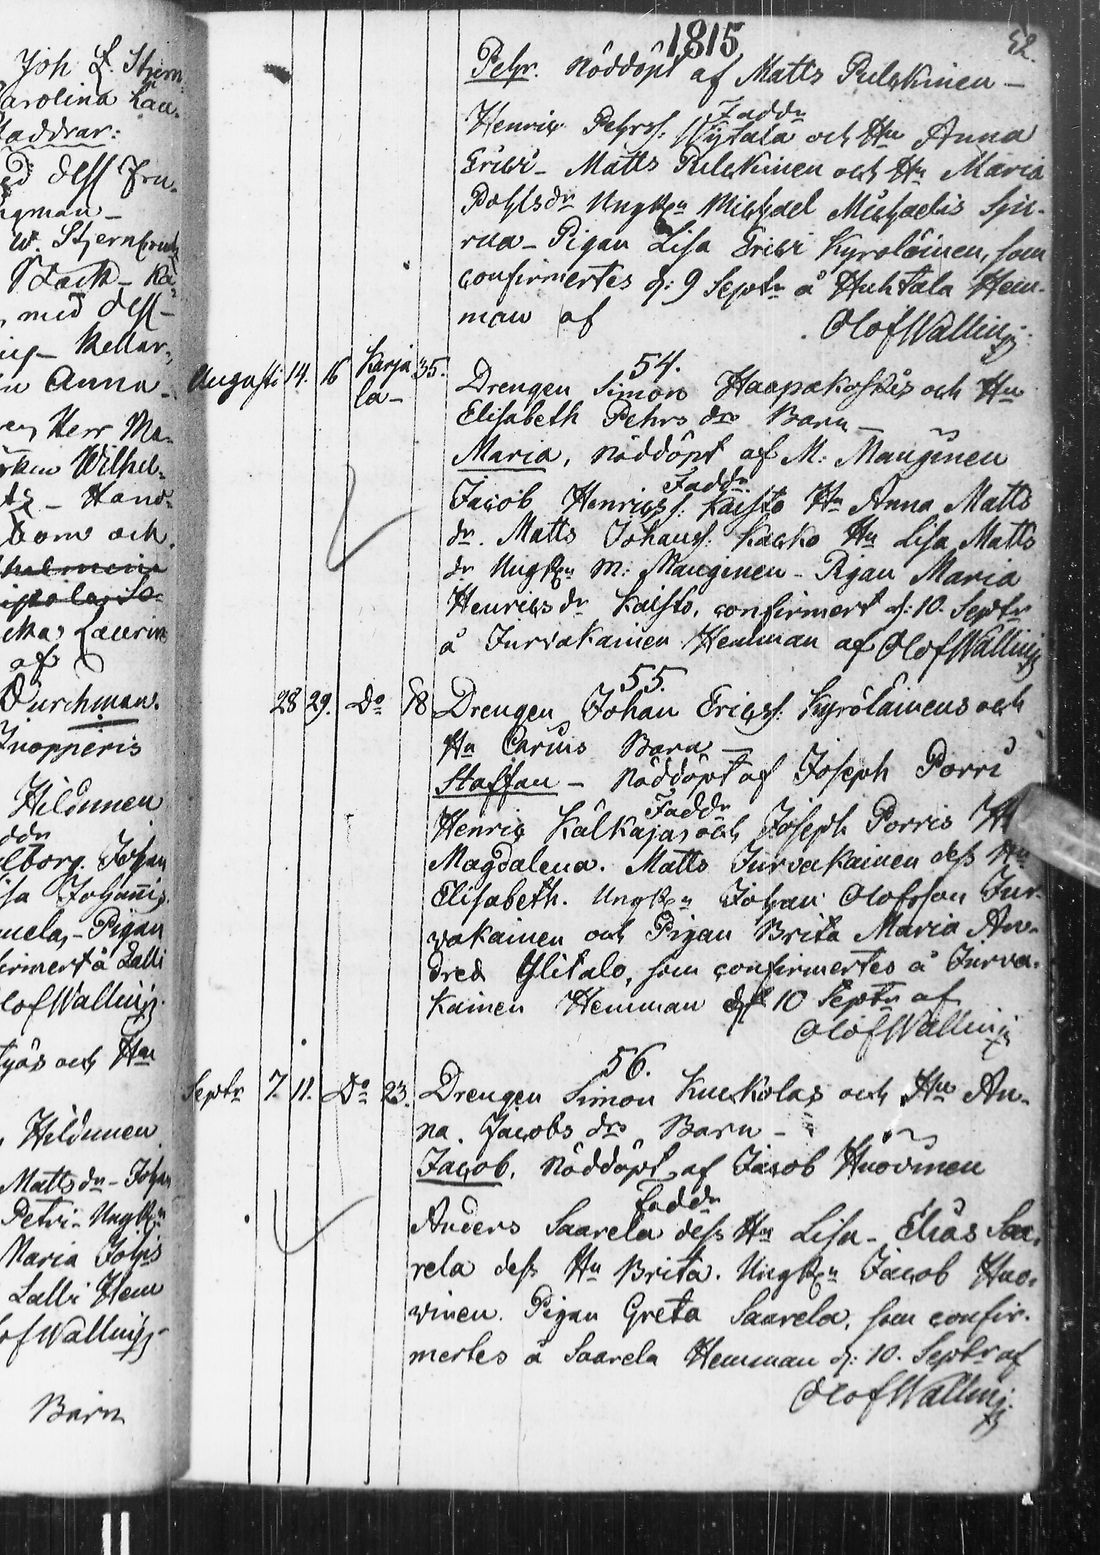 Joh. L. Stjern
Carolina Lau.
faddrar:
dess fru.
ngman
W. Stjern
med dess
Kellar
Anna
Herr Ma
Wilhel
Hand
Born och
Laurin
af
Durchman.
Knopperis
Hildunen
Johan
Pigan
firmert å Lalli
Olof Walling
och Hu
Hildunen
Matts dr Johan
Petri Ungkn
Maria
Lalli Hem
Olof Walling
Barn
1815
52
Pehr. Nöddöpt af Matts Pulkkinen
Faddr
Henric Pehrss. och Hu Anna
Erici Matts Pulkkinen och Hu Maria
Pohlsdr Ungkn Michael Michaelis Spu-
rua Pigan Lisa Erici Kyröläinen, som
confirmertes d: 9 Septr å Huhtala Hem-
man af Olof Walling
54.
Augusti 14. 16 Karja 35. Drengen Simon Haapakoskis och Hu
la Elisabeth Pehrs drs Barn
Maria, Nöddöpt af M: Mauginen
Faddr
Jacob Henricss. Kaisto Hu Anna Matts
dr. Matts Johanss. Kacko Hu Lisa Matts
dr Ungkn M: Mauginen Pigan Maria
Henrics dr Kaisto, confirmert d: 10. Septr
å Jurvakainen Hemman af Olof Walling
55.
28 29. Do 18 Drengen Johan Ericss. Kyröläinens och
Hu Carins Barn
Staffan Nöddöpt af Joseph Porri
Faddr
Henric Kälkäjas och Joseph Porris H
Magdalena. Matts Jurvakainen dess Hu
Elisabeth. Ungkn Johan Olofsson Jur-
vakainen och Pigan Brita Maria An-
dred Ylitalo, som confirmertes å Jurva-
kainen Hemman d 10 Septr af
Olof Walling
56.
Septr 7. 11. Do 23. Drengen Simon Kuckolas och Hu An-
na. Jacobs drs Barn
Jacob, Nöddöpt af Jacob Huövinen
Faddr
Anders Saarela dess Hu Lisa Elias Saa-
rela dess Hu Brita. Ungkn Jacob Huo-
vinen. Pigan Greta Saarela, som confir-
mertes å Saarela Hemman d: 10. Septr af
Olof Walling